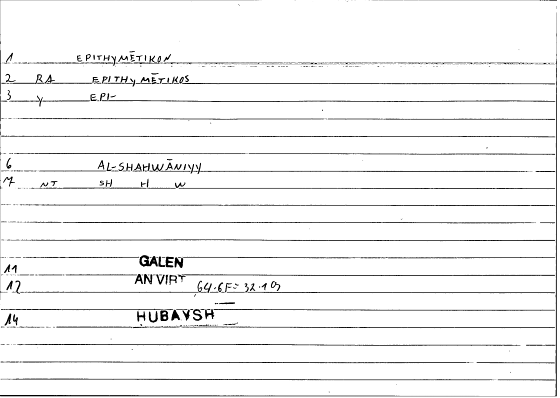 1 EPITHYMĒTIKON
2 RA EPITHYMĒTIKOS
3 y EPI-
6 AL-SHAHWĀNIYY
7 NT SH H W
11 GALEN
12 AN VIRT 64.6F= 32.10
14 HUBAYSH